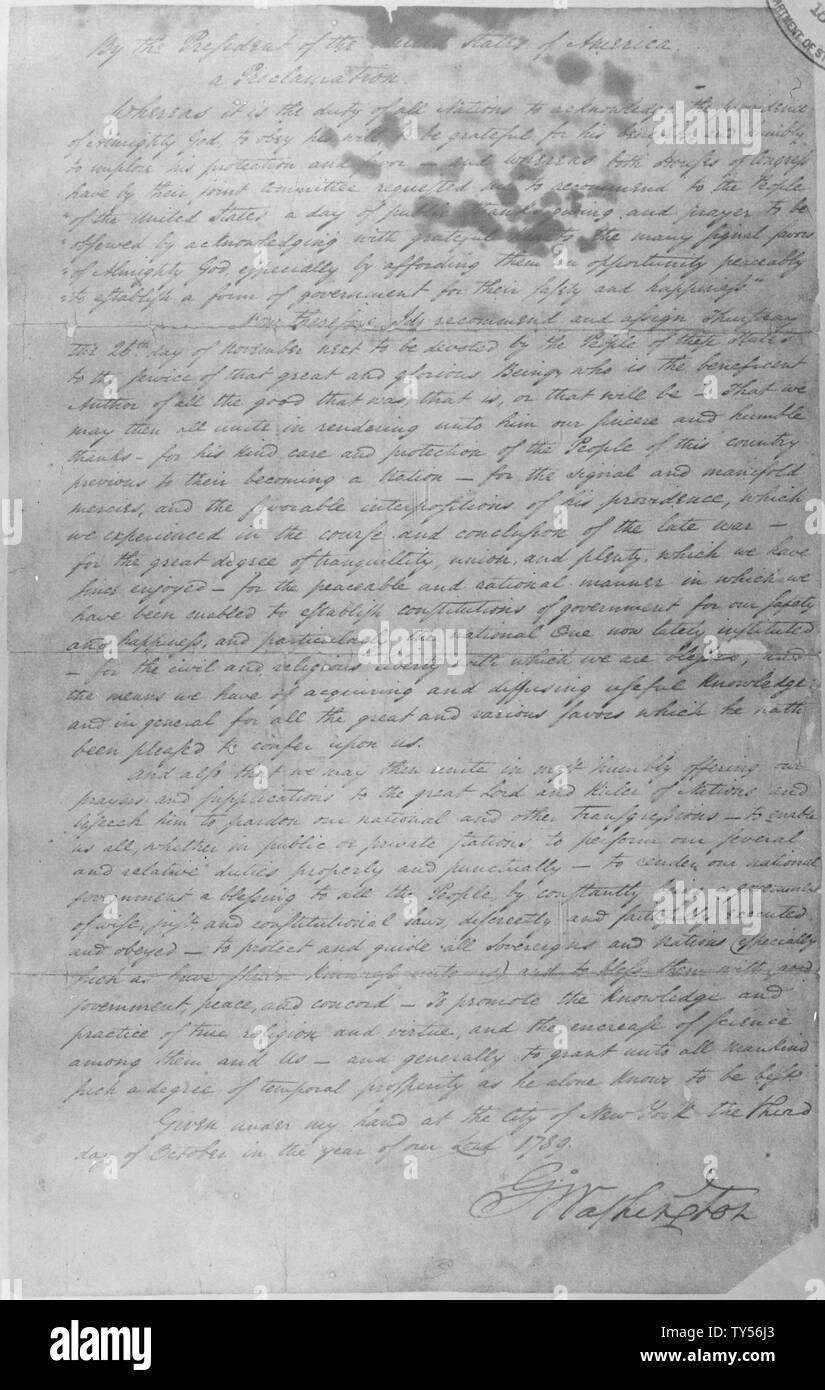 By the President of the United States of America.
a Proclamation.
Whereas it is the duty of all Nations to acknowledge the providence
of Almighty God, to obey his will, to be grateful for his benefits, and humbly
to implore his protection and favor – and whereas both Houses of Congress
have by their joint Committee requested me "to recommend to the People
"of the United States a day of public thanksgiving and prayer to be
"observed by acknowledging with grateful hearts the many signal favors
"of Almighty God, especially by affording them an opportunity peaceably
"to establish a form of government for their safety and happiness"
Now therefore I do recommend and assign Thursday
the 26th day of November next to be devoted by the People of these States
to the service of that great and glorious Being, who is the beneficent
Author of all the good that was, that is, or that will be – That we
may then all unite in rendering unto him our sincere and humble
thanks – for his kind care and protection of the People of this country
previous to their becoming a Nation – for the signal and manifold
mercies, and the favorable interpositions of his providence, which
we experienced in the course and conclusion of the late war –
for the great degree of tranquillity, union, and plenty, which we have
since enjoyed – for the peaceable and rational manner in which we
have been enabled to establish constitutions of government for our safety
and happiness, and particularly the national One now lately instituted
– for the civil and religious liberty with which we are blessed, and
the means we have of acquiring and diffusing useful knowledge
and in general for all the great and various favors which he hath
been pleased to confer upon us.
And also that we may then unite in most humbly offering our
prayers and supplications to the great Lord and Ruler of Nations and
beseech him to pardon our national and other transgressions – to enable
us all, whether in public or private stations, to perform our several
and relative duties properly and punctually – to render our national
government a blessing to all the People, by constantly being a government
of wise, just and constitutional laws, discreetly and faithfully executed
and obeyed – to protect and guide all Sovereigns and Nations (especially
such as have shown kindness unto us) and to bless them with good
government, peace, and concord – To promote the knowledge and
practice of true religion and virtue, and the encrease of science
among them and Us – and generally to grant unto all mankind
such a degree of temporal prosperity as he alone knows to be best.
Given under my hand at the City of New York the third
day of October in the year of our Lord 1789.
Go Washington
alamy
alamy
alamy
alamy
Image ID: TY56J3
www.alamy.com